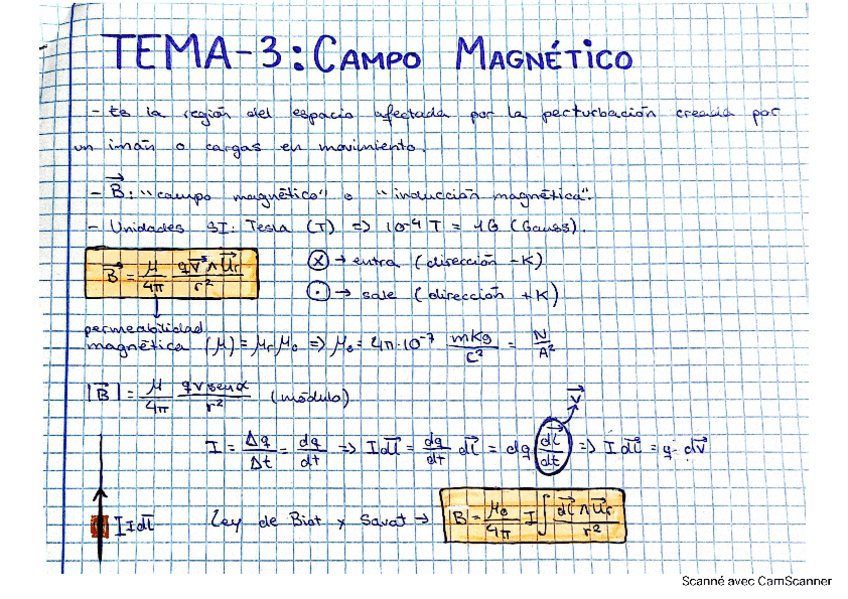 TEMA-3: CAMPO MAGNÉTICO
- Es la región del espacio afectada por la perturbación creada por
un imán o cargas en movimiento.
- B⃗: "campo magnético" o "inducción magnética".
- Unidades SI: Tesla (T) => 10⁻⁴ T = 1G (Gauss).
B⃗ = μ/4π qv⃗ ∧ u⃗r / r²
ⓧ → entra (dirección -K)
⊙ → sale (dirección +K)
permeabilidad
magnética (μ) = μr μ0 => μ0 = 4π·10⁻⁷ mKg/C² = N/A²
|B⃗| = μ/4π qv senα / r² (módulo)
v⃗
I = Δq/Δt = dq/dt => I dl⃗ = dq/dt dl⃗ = dq dl⃗/dt => I dl⃗ = q · dv⃗
I Idl⃗
Ley de Biot y Savat → B = μ0/4π I ∫ dl⃗ ∧ u⃗r / r²
Scanné avec CamScanner